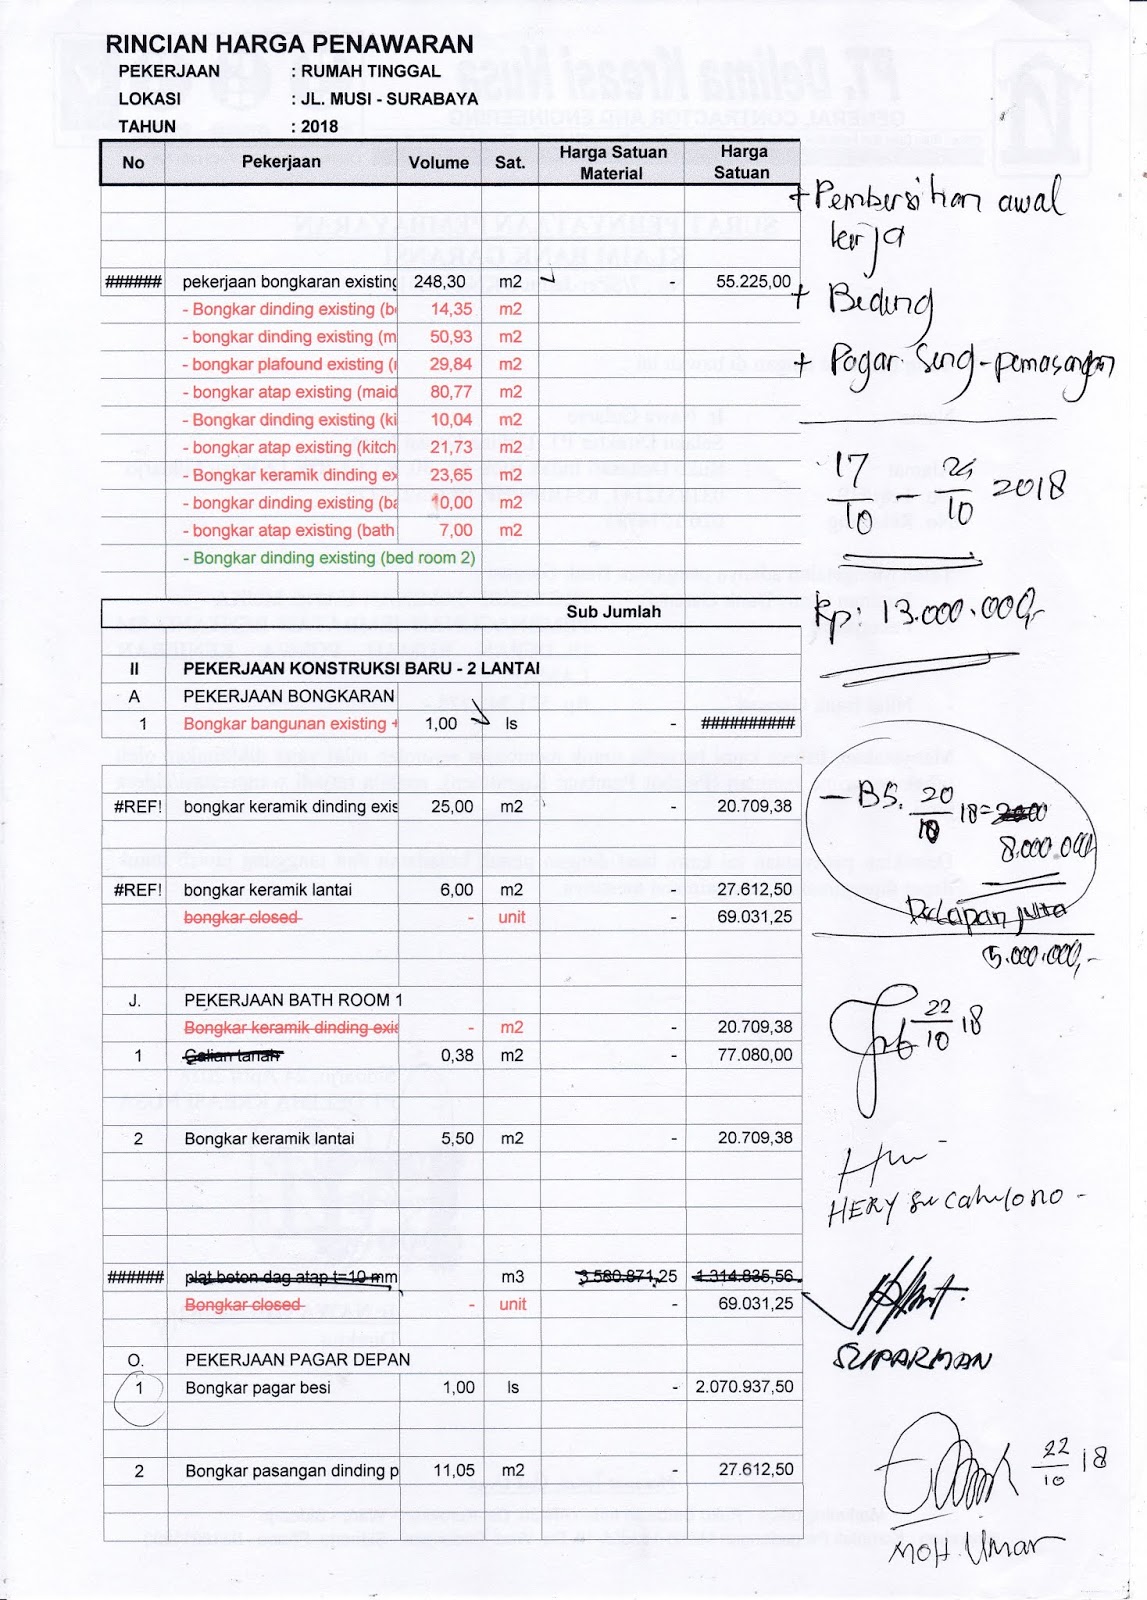 RINCIAN HARGA PENAWARAN
PEKERJAAN : RUMAH TINGGAL
LOKASI : JL. MUSI - SURABAYA
TAHUN : 2018
No Pekerjaan Volume Sat. Harga Satuan Material Harga Satuan
###### pekerjaan bongkaran existing 248,30 m2 - 55.225,00
- Bongkar dinding existing (b 14,35 m2
- bongkar dinding existing (m 50,93 m2
- bongkar plafound existing ( 29,84 m2
- bongkar atap existing (maid 80,77 m2
- Bongkar dinding existing (ki 10,04 m2
- bongkar atap existing (kitch 21,73 m2
- Bongkar keramik dinding ex 23,65 m2
- bongkar dinding existing (ba 10,00 m2
- bongkar atap existing (bath 7,00 m2
- Bongkar dinding existing (bed room 2)
Sub Jumlah
II PEKERJAAN KONSTRUKSI BARU - 2 LANTAI
A PEKERJAAN BONGKARAN
1 Bongkar bangunan existing + 1,00 ls - ##########
#REF! bongkar keramik dinding exis 25,00 m2 - 20.709,38
#REF! bongkar keramik lantai 6,00 m2 - 27.612,50
bongkar closed - unit - 69.031,25
J. PEKERJAAN BATH ROOM 1
Bongkar keramik dinding exis - m2 - 20.709,38
1 Galian tanah 0,38 m2 - 77.080,00
2 Bongkar keramik lantai 5,50 m2 - 20.709,38
###### plat beton dag atap t=10 mm m3 3.580.871,25 1.314.835,56
Bongkar closed - unit - 69.031,25
O. PEKERJAAN PAGAR DEPAN
1 Bongkar pagar besi 1,00 ls - 2.070.937,50
2 Bongkar pasangan dinding p 11,05 m2 - 27.612,50
+ Pembersihan awal
kerja
+ Bedeng
+ Pagar Seng - pemasangan
17/10 - 24/10 2018
Rp: 13.000.000,-
- BS. 20/10 18 =
8.000.000
Delapan juta
5.000.000,-
22/10 18
HERY Sucahyono -
SUPARMAN
22/10 18
MOH. Umar